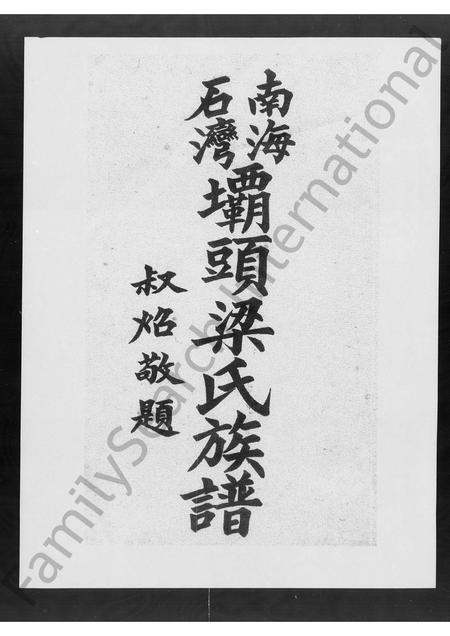 南海
石灣
壩頭梁氏族譜
叔焰敬題
FamilySearch International